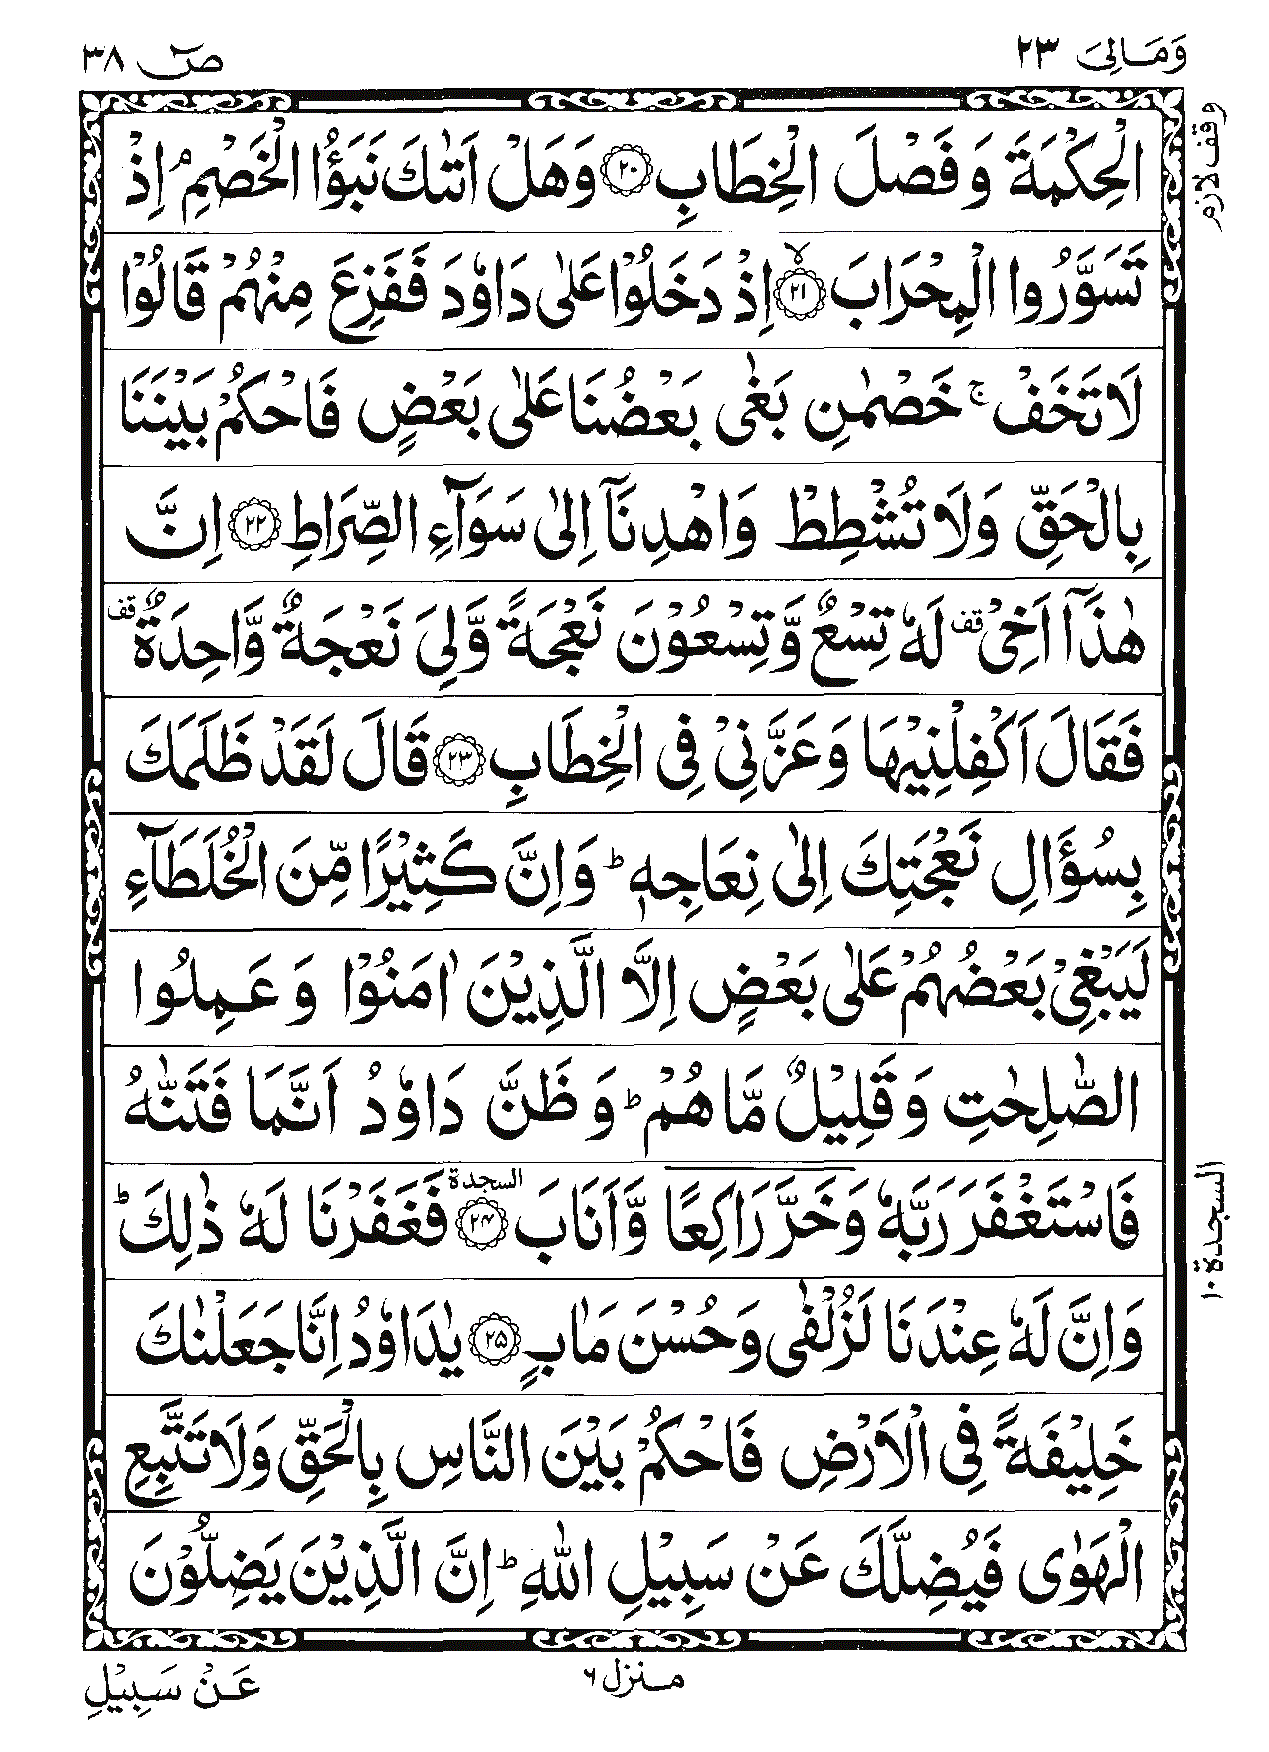 وَمَالِیَ ٢٣
صٓ ٣٨
وقف لازم
الْحِكْمَةَ وَ فَصْلَ الْخِطَابِ ۝٢٠ وَهَلْ اَتٰىكَ نَبَؤُا الْخَصْمِ ۘ اِذْ
تَسَوَّرُوا الْمِحْرَابَ ۝٢١ۙ اِذْ دَخَلُوْا عَلٰى دَاوٗدَ فَفَزِعَ مِنْهُمْ قَالُوْا
لَا تَخَفْ ۚ خَصْمٰنِ بَغٰى بَعْضُنَا عَلٰى بَعْضٍ فَاحْكُمْ بَيْنَنَا
بِالْحَقِّ وَلَا تُشْطِطْ وَاهْدِنَآ اِلٰى سَوَآءِ الصِّرَاطِ ۝٢٢ اِنَّ
هٰذَآ اَخِيْ قف لَهٗ تِسْعٌ وَّتِسْعُوْنَ نَعْجَةً وَّلِيَ نَعْجَةٌ وَّاحِدَةٌ قف
فَقَالَ اَكْفِلْنِيْهَا وَعَزَّنِيْ فِي الْخِطَابِ ۝٢٣ قَالَ لَقَدْ ظَلَمَكَ
بِسُؤَالِ نَعْجَتِكَ اِلٰى نِعَاجِهٖ ؕ وَاِنَّ كَثِيْرًا مِّنَ الْخُلَطَآءِ
لَيَبْغِيْ بَعْضُهُمْ عَلٰى بَعْضٍ اِلَّا الَّذِيْنَ اٰمَنُوْا وَ عَمِلُوا
الصّٰلِحٰتِ وَ قَلِيْلٌ مَّا هُمْ ؕ وَ ظَنَّ دَاوٗدُ اَنَّمَا فَتَنّٰهُ
فَاسْتَغْفَرَ رَبَّهٗ وَخَرَّ رَاكِعًا وَّاَنَابَ ۝٢٤ السجدة فَغَفَرْنَا لَهٗ ذٰلِكَ ؕ
السجدة ١٠
وَاِنَّ لَهٗ عِنْدَنَا لَزُلْفٰى وَحُسْنَ مَاٰبٍ ۝٢٥ يٰدَاوٗدُ اِنَّا جَعَلْنٰكَ
خَلِيْفَةً فِي الْاَرْضِ فَاحْكُمْ بَيْنَ النَّاسِ بِالْحَقِّ وَلَا تَتَّبِعِ
الْهَوٰى فَيُضِلَّكَ عَنْ سَبِيْلِ اللّٰهِ ؕ اِنَّ الَّذِيْنَ يَضِلُّوْنَ
منزل ٦
عَنْ سَبِيْلِ